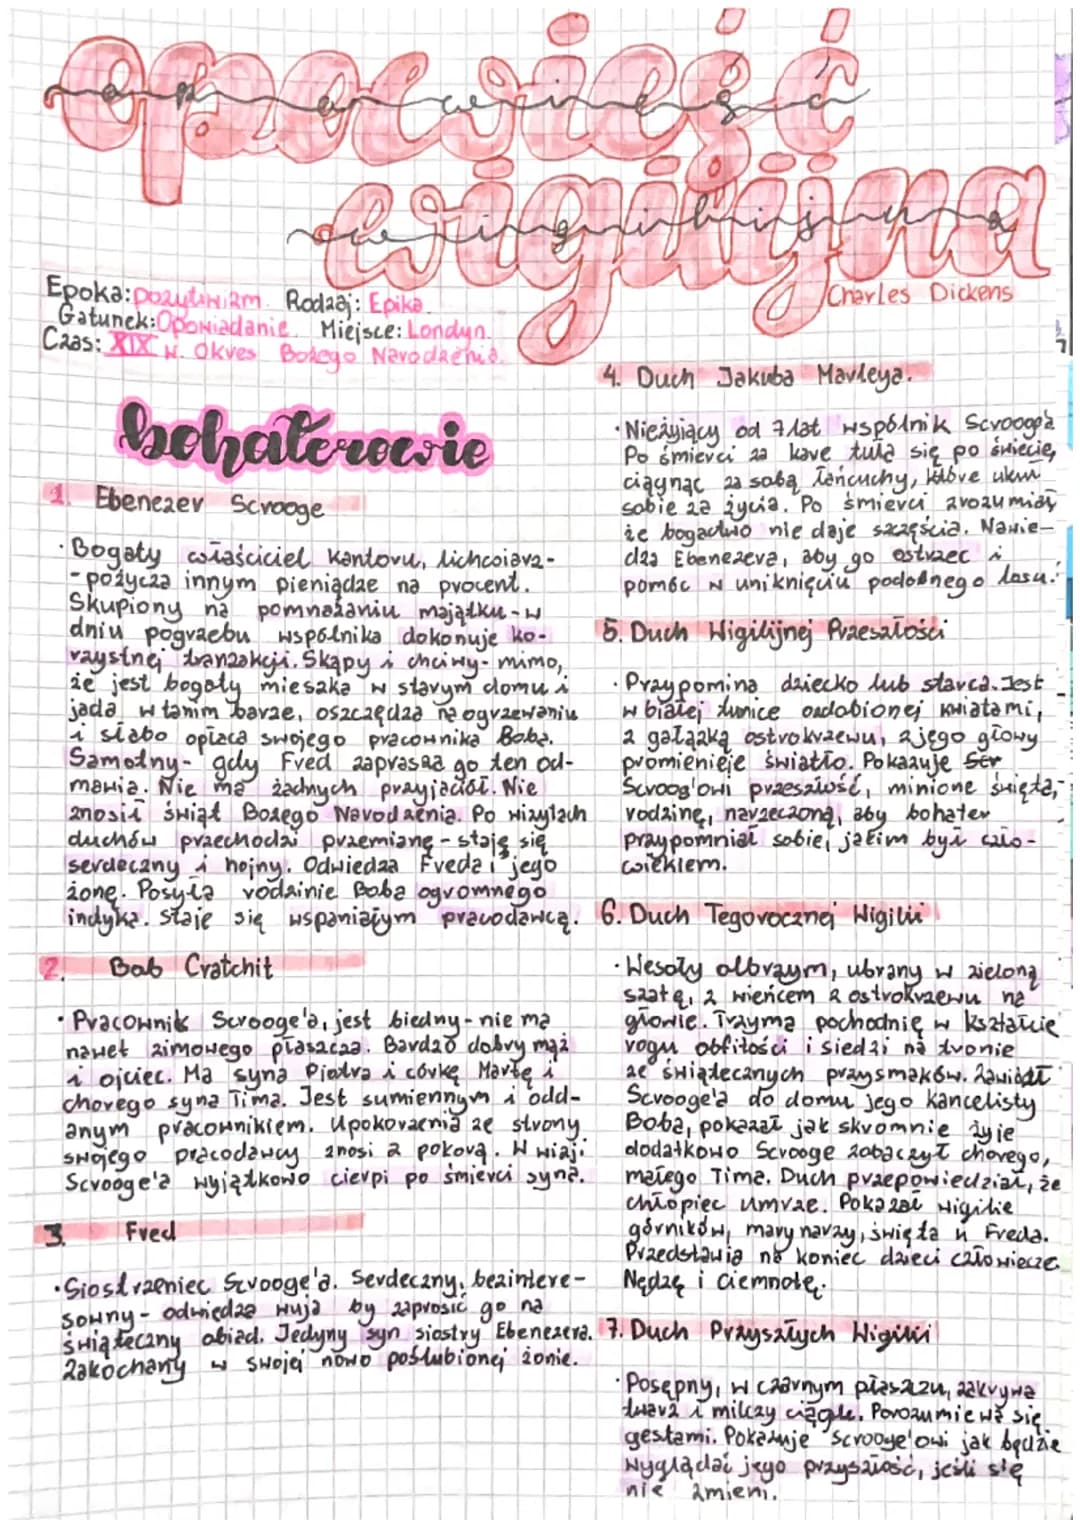 opowieść
wigilijna
Charles Dickens
Epoka: pozytywizm. Rodzaj: Epika.
Gatunek: Opowiadanie. Miejsce: Londyn.
Czas: XIX w. Okres Bożego Narodzenia.
bohaterowie
1. Ebenezer Scrooge
· Bogaty właściciel kantoru, lichwiarz-
- pożycza innym pieniądze na procent.
Skupiony na pomnażaniu majątku - w
dniu pogrzebu wspólnika dokonuje ko-
rzystnej tranzakcji. Skąpy i chciwy - mimo,
że jest bogaty mieszka w starym domu i
jada w tanim barze, oszczędza na ogrzewaniu
i słabo opłaca swojego pracownika Boba.
Samotny - gdy Fred zaprasza go ten od-
mawia. Nie ma żadnych przyjaciół. Nie
znosił świąt Bożego Narodzenia. Po wizytach
duchów przechodzi przemianę - staję się
serdeczny i hojny. Odwiedza Freda i jego
żonę. Posyła rodzinie Boba ogromnego
indyka. Staje się wspaniałym pracodawcą.
2. Bob Cratchit
· Pracownik Scrooge'a, jest biedny - nie ma
nawet zimowego płaszcza. Bardzo dobry mąż
i ojciec. Ma syna Piotra i córkę Martę i
chorego syna Tima. Jest sumiennym i odd-
anym pracownikiem. Upokorzenia ze strony
swojego pracodawcy znosi z pokorą. W wizji
Scrooge'a wyjątkowo cierpi po śmierci syna.
3. Fred
· Siostrzeniec Scrooge'a. Serdeczny, bezintere-
sowny - odwiedza wuja by zaprosić go na
świąteczny obiad. Jedyny syn siostry Ebenezera.
Zakochany w swojej nowo poślubionej żonie.
4. Duch Jakuba Marleya.
· Nieżyjący od 7 lat wspólnik Scrooge'a
Po śmierci za karę tuła się po świecie,
ciągnąc za sobą łańcuchy, które ukuł
sobie za życia. Po śmierci zrozumiał
że bogactwo nie daje szczęścia. Nawie-
dza Ebenezera, aby go ostrzec i
pomóc w uniknięciu podobnego losu.
5. Duch Wigilijnej Przeszłości
· Przypomina dziecko lub starca. Jest
w białej tunice ozdobionej kwiatami,
z gałązką ostrokrzewu, z jego głowy
promienieje światło. Pokazuje
Scroog'owi przeszłość, minione święta,
rodzinę, narzeczoną, aby bohater
przypomniał sobie, jakim był czło-
wiekiem.
6. Duch Tegorocznej Wigilii
· Wesoły olbrzym, ubrany w zieloną
szatę, z wieńcem z ostrokrzewu na
głowie. Trzyma pochodnię w kształcie
rogu obfitości i siedzi na tronie
ze świątecznych przysmaków. Zawiódł
Scrooge'a do domu jego kancelisty
Boba, pokazał jak skromnie żyje
dodatkowo Scrooge zobaczył chorego,
małego Tima. Duch przepowiedział, że
chłopiec umrze. Pokazał wigilie
górników, marynarzy, święta u Freda.
Przedstawia na koniec dzieci człowiecze
Nędzę i Ciemnotę.
7. Duch Przyszłych Wigilii
· Posępny, w czarnym płaszczu, zakrywa
twarz i milczy ciągle. Porozumiewa się
gestami. Pokazuje Scrooge'owi jak będzie
wyglądać jego przyszłość, jeśli się
nie zmieni.